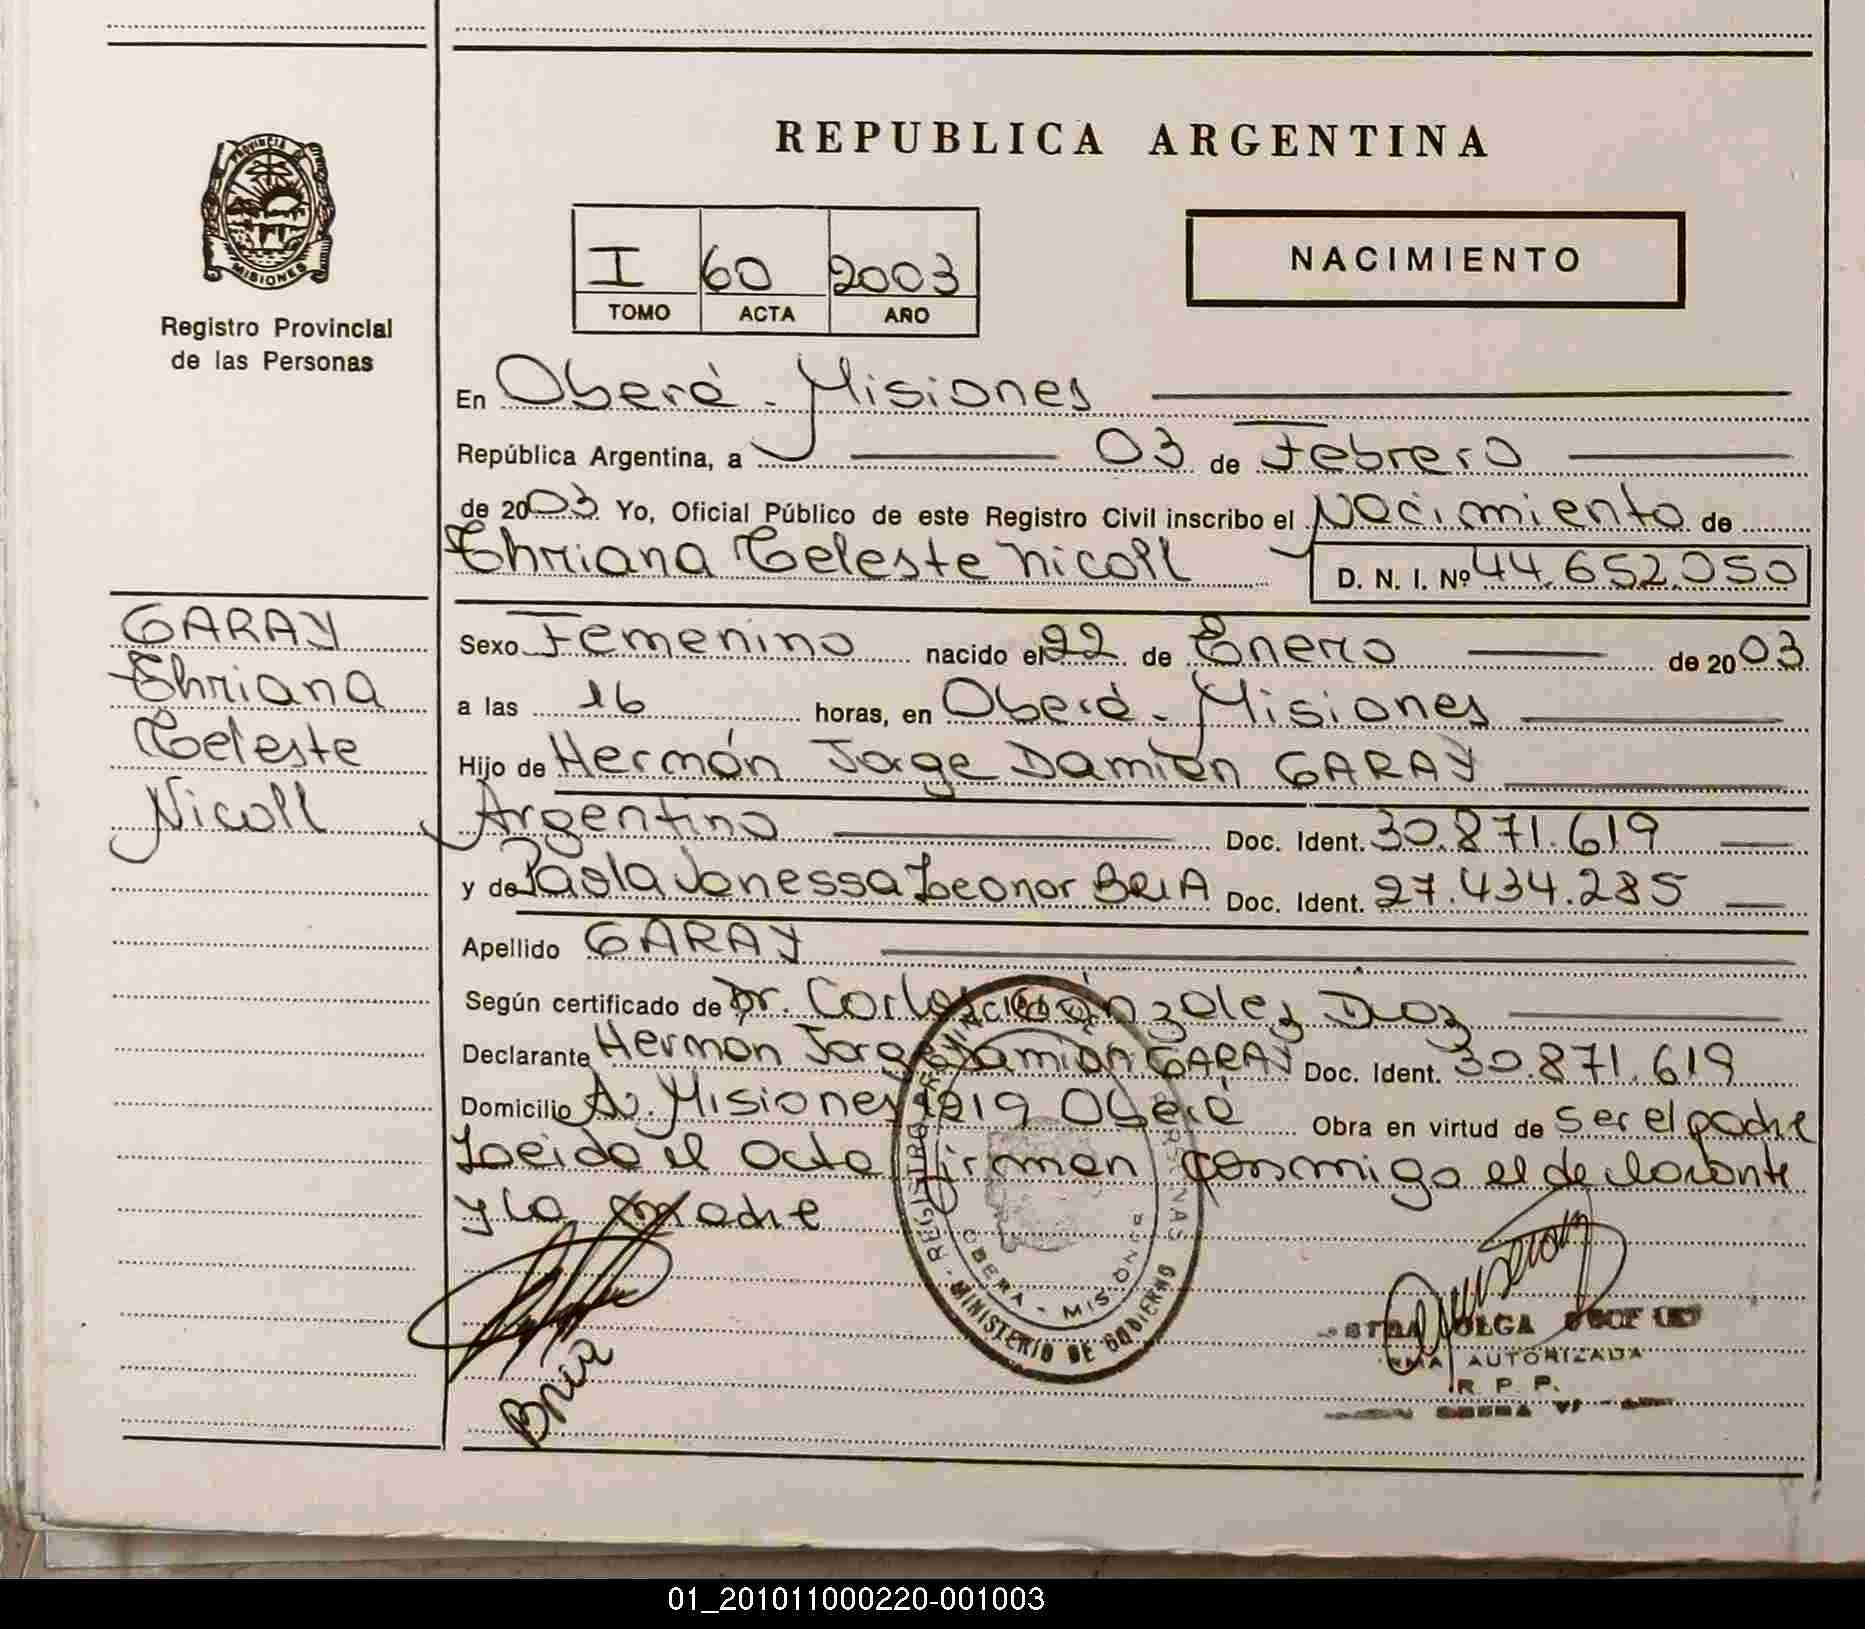 REPUBLICA ARGENTINA
PROVINCIA DE
MISIONES
Registro Provincial
de las Personas
I 60 2003
TOMO ACTA AÑO
NACIMIENTO
En Oberá - Misiones
República Argentina, a 03 de Febrero
de 2003 Yo, Oficial Público de este Registro Civil inscribo el Nacimiento de
Thriana Celeste Nicoll D. N. I. Nº 44.652.050
GARAY
Thriana
Celeste
Nicoll
Sexo Femenino nacido el 22 de Enero de 2003
a las 16 horas, en Oberá - Misiones
Hijo de Hermán Jorge Damián GARAY
Argentino Doc. Ident. 30.871.619
y de Paola Vanessa Leonor BRIA Doc. Ident. 27.434.285
Apellido GARAY
Según certificado de Dr. Carlos González Díaz
Declarante Herman Jorge Damian GARAY Doc. Ident. 30.871.619
Domicilio Av. Misiones 1219 Oberá Obra en virtud de ser el padre
Leida el acta firman conmigo el declarante
y la madre
REGISTRO PROVINCIAL DE PERSONAS
OBERA - MISIONES
MINISTERIO DE GOBIERNO
Bria
OLGA
AUTORIZADA
R. P. P.
OBERA
01_201011000220-001003